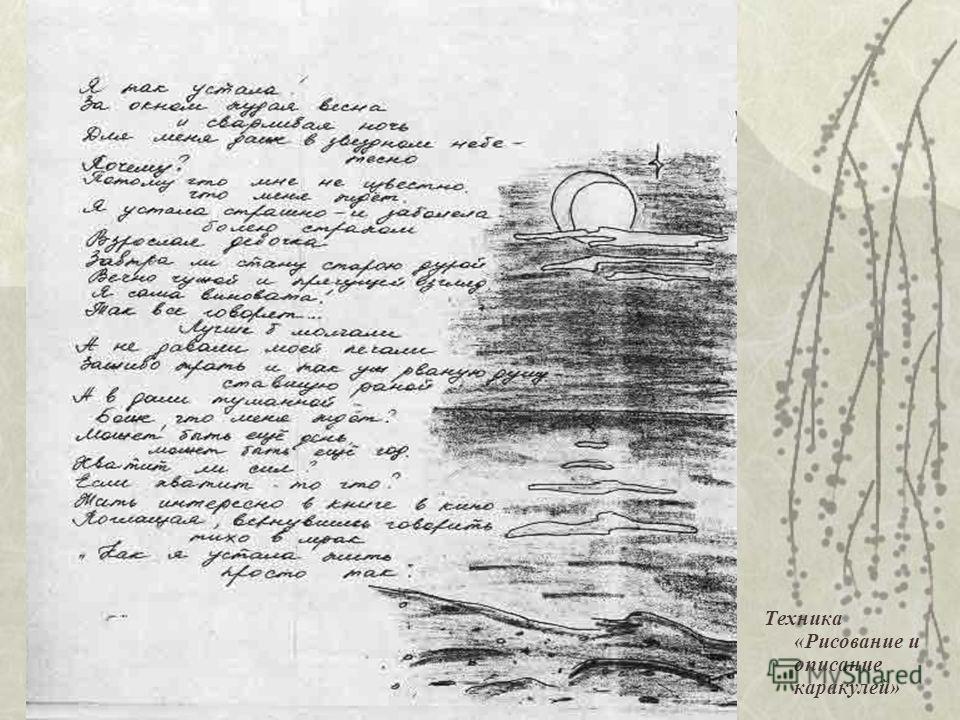 Я так устала!
За окном чудая весна
и сварливая ночь
Для меня даже в звездном небе –
тесно
Почему?
Потому что мне не известно.
что меня ждет.
Я устала страшно – и заболела
болею страхом
Взрослая девочка
Завтра ли стану старою дурой
Вечно чужой и прячущей взгляд
Я сама виновата!
Так все говорят...
Лучше б молчали
А не давали моей печали
Заживо жрать и так уж рваную душу
ставшую раной
А в дали туманной
Боже, что меня ждёт?
Может быть ещё день,
может быть ещё год.
Хватит ли сил?
Если хватит - то что?
Жить интересно в книге в кино
Почащая, вернувшись говорить
тихо в мрак
"Как я устала жить
просто так.
Техника
«Рисование и
описание
каракулей»
MyShared